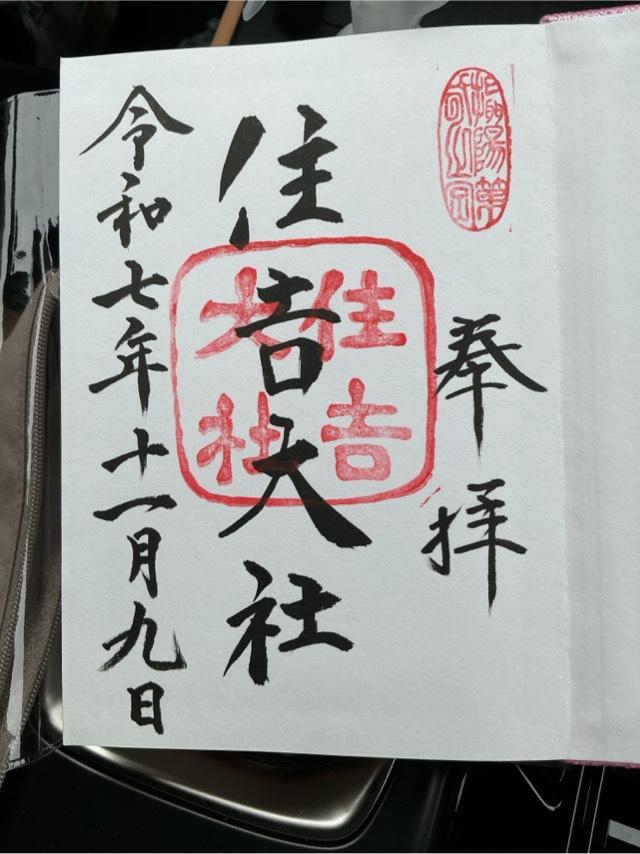 奉拝
住吉大社
住吉
大社
令和七年十一月九日